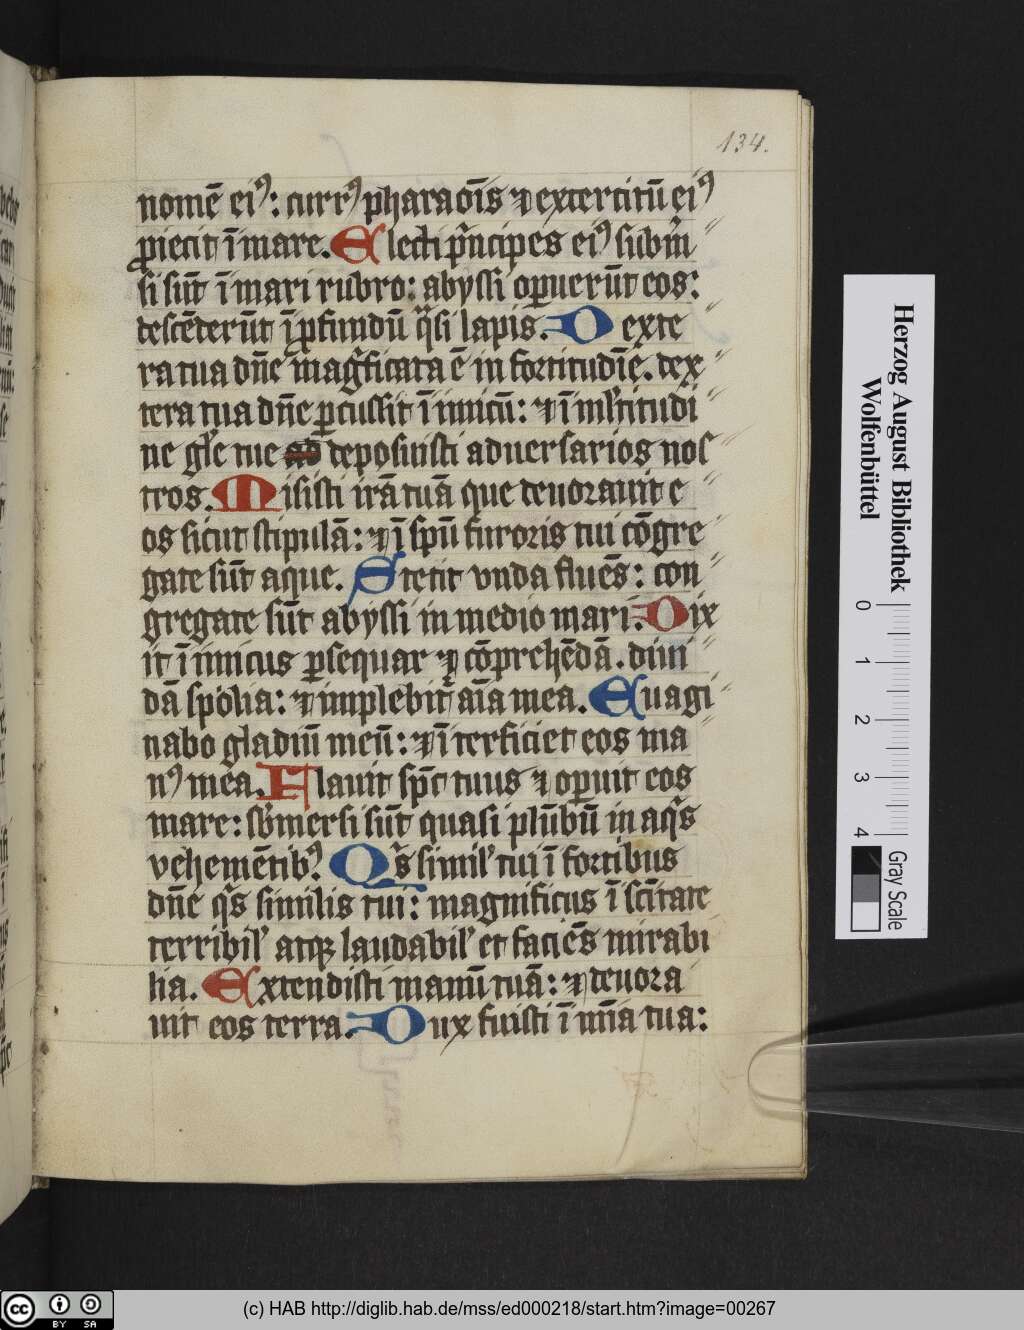 134.
nomē eiꝰ: currꝰ pharaōis ⁊ exercitū eiꝰ
ꝓiecit ī mare. Electi pͥncipes eiꝰ subm̄
si sūt ī mari rubro: abyssi oꝑuerūt eos:
descēderūt ī ꝓfundū qͣsi lapis. Dexte
ra tua dn̄e magͥficata ē in fortitudīe. dex
tera tua dn̄e ꝑcussit ī imicū: ⁊ ī ml̓titudi
ne gl̓e tue ad deposuisti aduersarios nos
tros. Misisti irā tuā que deuorauit e
os sicut stipulā: ⁊ ī sp̄u furoris tui cōgre
gate sūt aque. Stetit vnda fluēs: con
gregate sūt abyssi in medio mari. Dix
it ī imicus ꝑsequar ⁊ cōprehēdā. diui
dā spolia: ⁊ implebit̉ aīa mea. Euagi
nabo gladiū meū: ⁊ īterficiet eos ma
nꝰ mea. Flauit sp̄c tuus ⁊ oꝑuit eos
mare: sb̓mersi sūt quasi plūbū in aqͥs
vehemētibꝰ. Qͥs simil̓ tui ī fortibus
dn̄e qͥs similis tui: magnificus ī sc̄itate
terribil̓ atqꝫ laudabil̓ et faciēs mirabi
lia. Extendisti manū tuā: ⁊ deuora
uit eos terra. Dux fuisti ī mīa tua:
Herzog August Bibliothek
Wolfenbüttel
0 1 2 3 4
Gray Scale
cc BY SA
(c) HAB http://diglib.hab.de/mss/ed000218/start.htm?image=00267